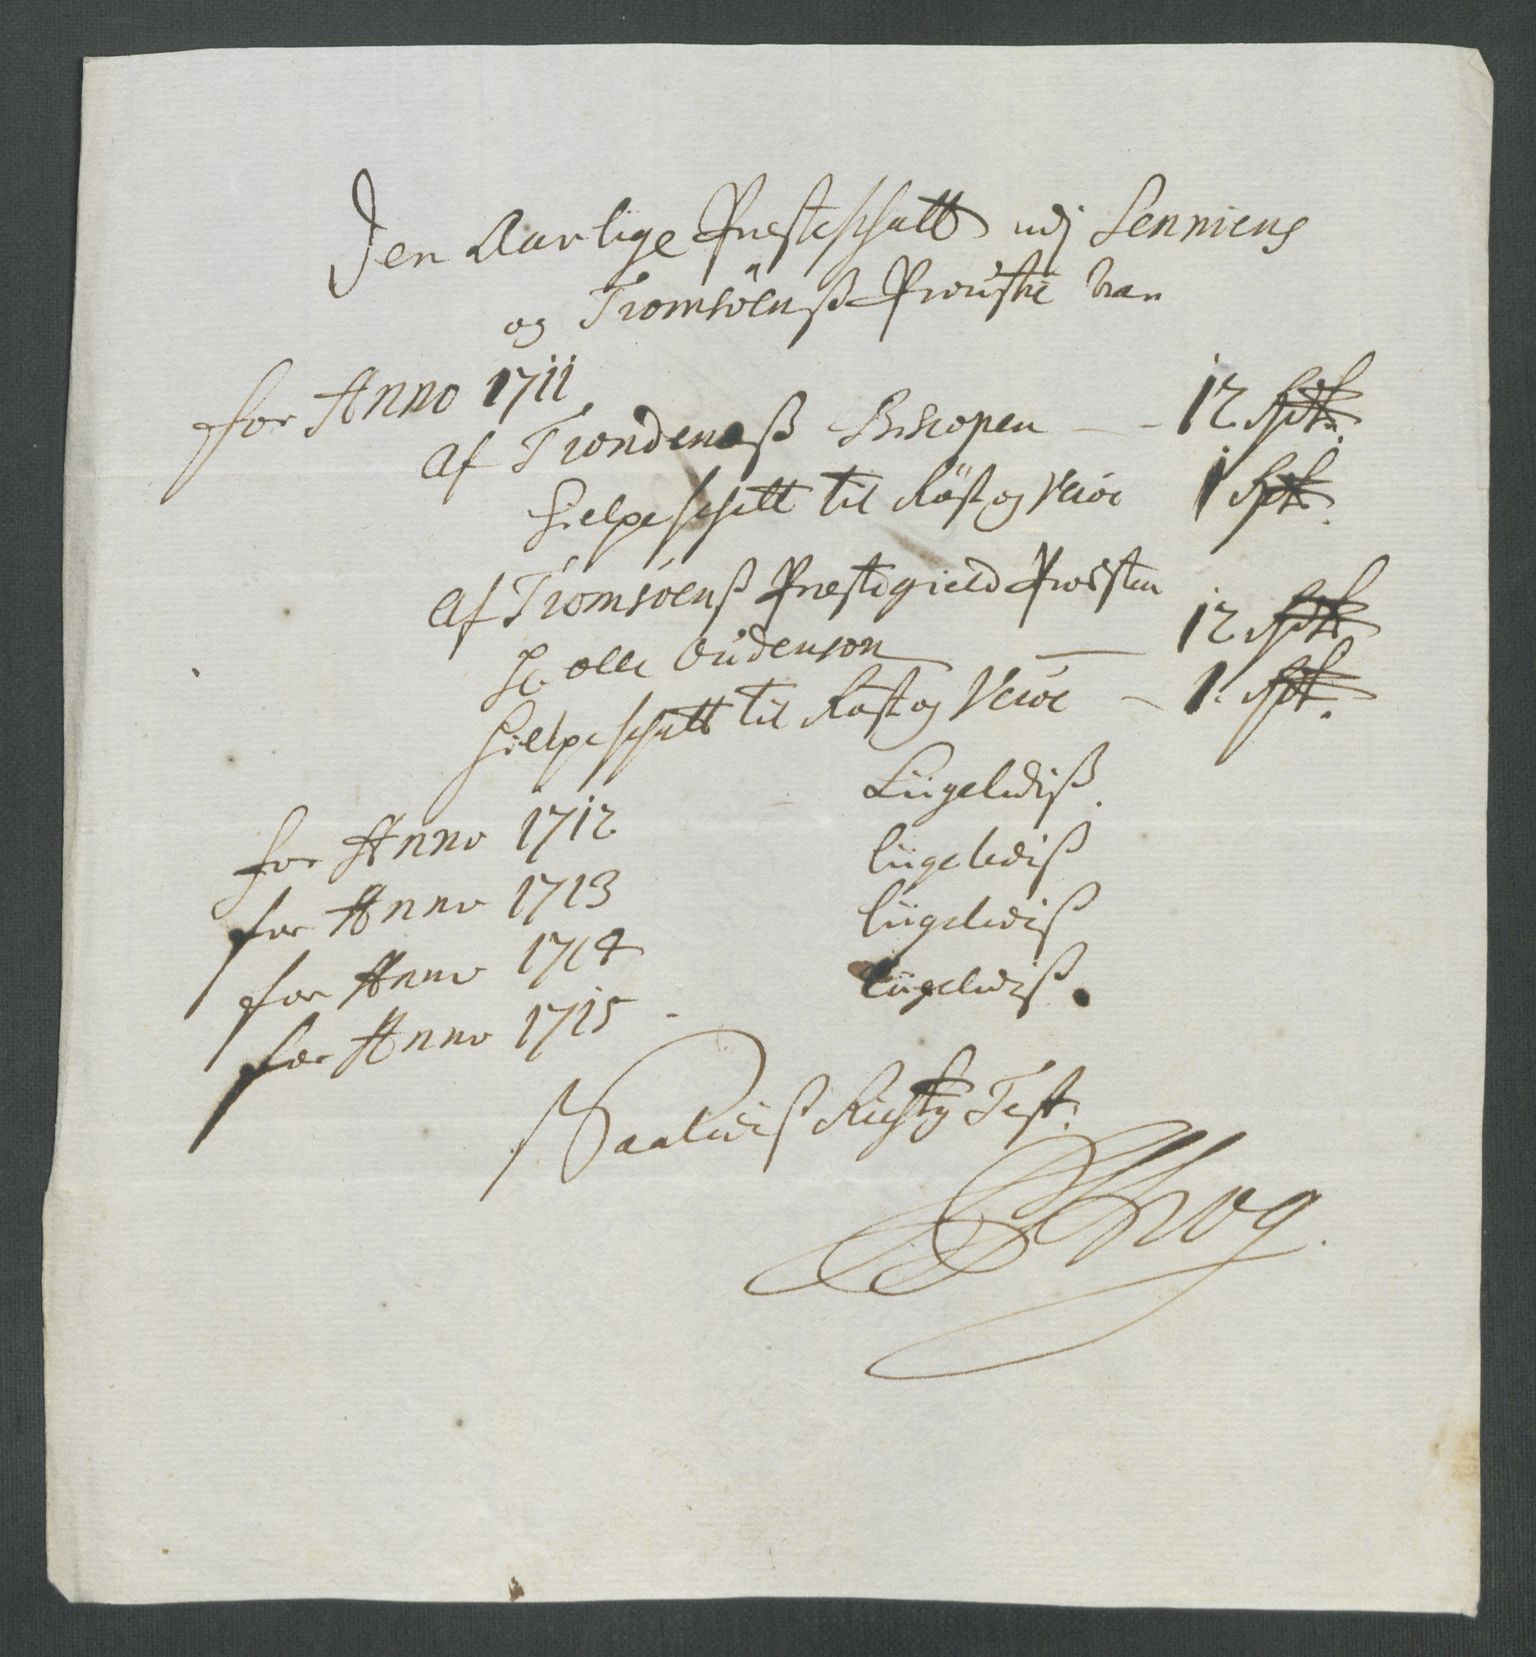 Den Aarlige Presteschatt udj Senniens
og Tromsöens Prouste
for Anno 1711
af Trondenæß Biscopen — - 12 Rdlr.
Hielpeschatt til Röst og Veröe 1 Rdlr.
af Tromsöens Prestegield Prousten
Hr. Olle Oudenson — 12 Rdlr
Hielpeschatt til Röst og Veröe - 1. Rdlr.
for Anno 1712 Liigeledis.
for Anno 1713 liigeledis
for Anno 1714 liigeledis
for Anno 1715 - liigeledis.
Saaledis Rigtig Test: